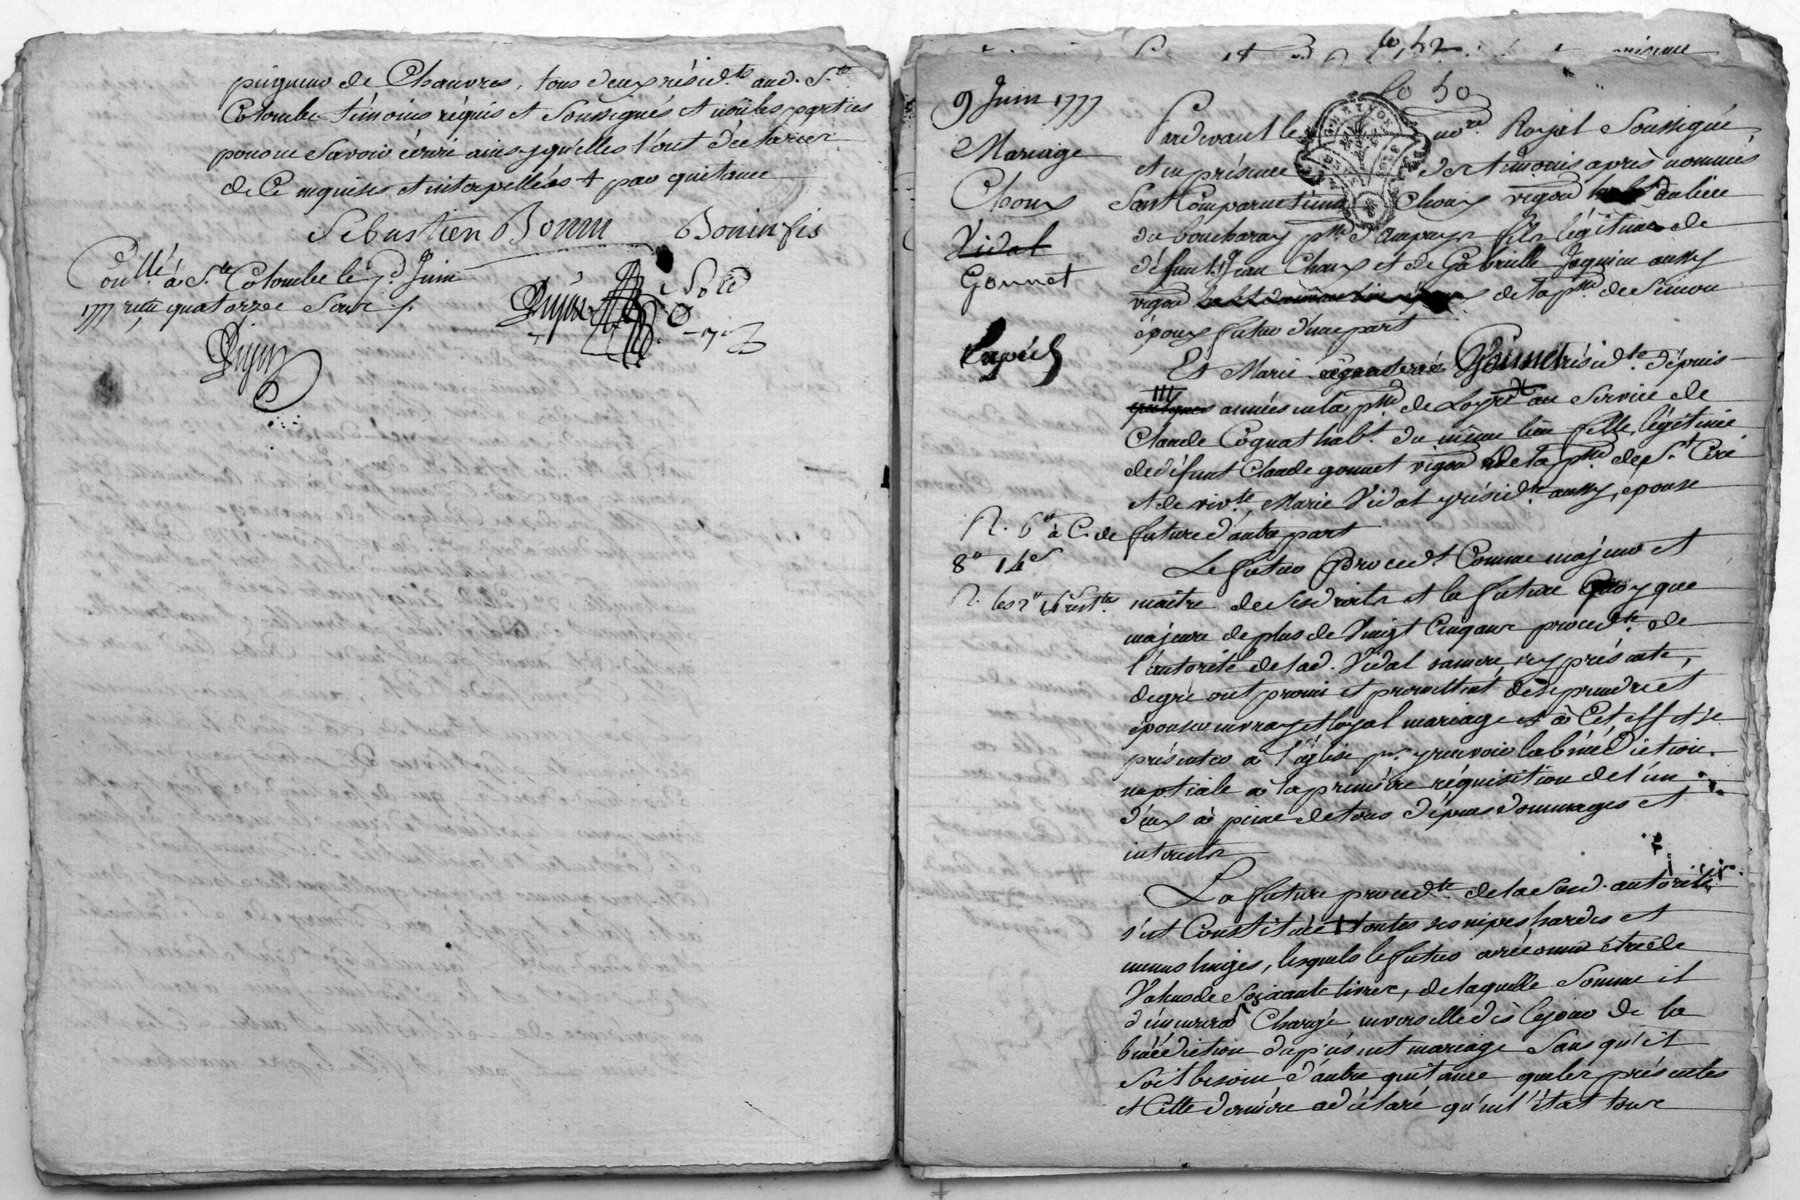 peigneur de Chanvres, tous deux résid.ts aud. S.te
Colombe témoins réquis et Soussignés et non les parties
pour ne Savoir écrire ainsy qu'elles l'ont déclarer
de Ce enquises et interpellées + par quitance
Sébastien Bonin Bonin fis
Con.llé à S.te Colombe le Juin
1777 reçu quatorze Sous
Pupier
9 Juin 1777
Mariage
Choux
Vidal
Gonnet
Expéd
fo 52
fo 50
Pardevant le no.re Royal Soussigné
et en présence des témoins après nommés
Sont Comparu Choux vigon du lieu
fils légitime de
défunt Jean Choux et de Gabrielle Jaquin aussy
vigon de la p.sse de
époux futur d'une part
Et Marie Gonnet résid.te depuis
années en la p.sse de au Service de
Claude Cognat hab.t du même lieu fille légitime
de défunt Claude gonnet vigon de la p.sse de S.t Ciré
et de viv.te Marie Vidal y résid.te aussy, épouse
future d'autre part
R. 6# à C. de
8# 14s
R. les 2#
Le futur Proced.t Comme majeur et
maître de Ses droits et la future quoy que
majeure de plus de Vingt Cinq ans proced.te de
l'autorité de lad. Vidal sa mere, icy présente,
de gré ont promi et promettent de se prendre et
épouser en vray et loyal mariage et à Cet effet se
présenter à l'église p.r y recevoir la bénédiction
nuptiale à la première réquisition de l'un
d'eux à peine de tous dépens dommages et
interets
La future proced.te de la Susd. autorité
s'est Constituée toutes ses nipes hardes et
menus linges, lesquels le futur a réconnu être de
Valeur de Soixante livres, de laquelle Somme il
demeurera Chargé envers elle dès le jour de la
bénédiction du présent mariage Sans qu'il
Soit besoin d'autre quitance que les présentes
et Cette dernière a déclaré qu'en l'état tous